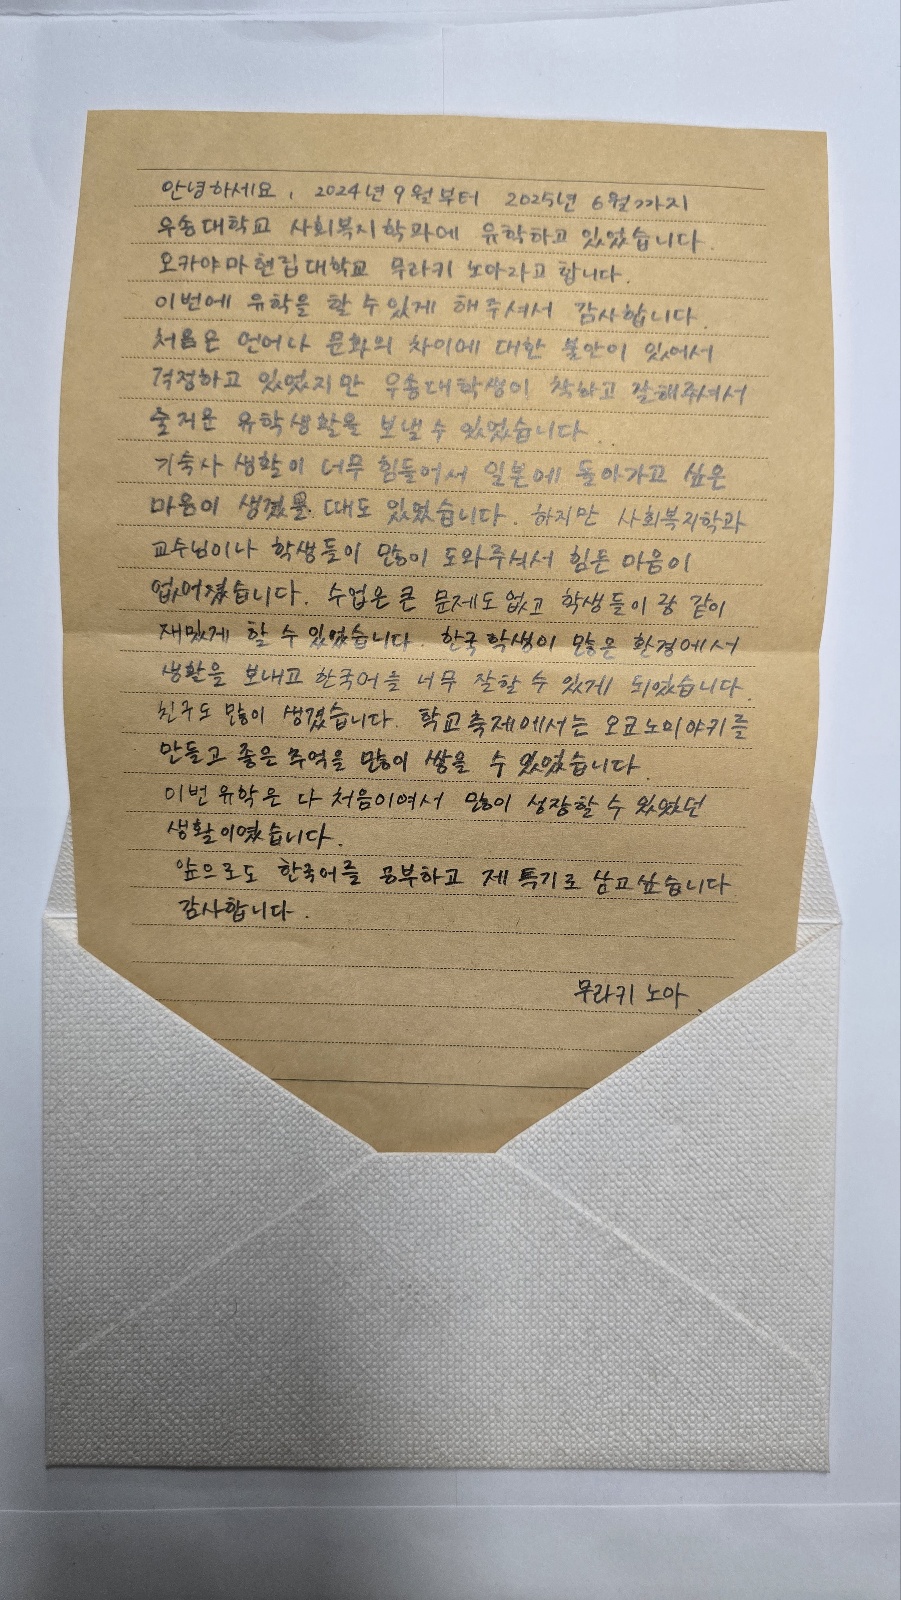 안녕하세요, 2024년 9월부터 2025년 6월까지
우송대학교 사회복지학과에 유학하고 있었습니다.
오카야마현립대학교 무라키 노아라고 합니다.
이번에 유학을 할 수 있게 해주셔서 감사합니다.
처음은 언어나 문화의 차이에 대한 불안이 있어서
걱정하고 있었지만 우송대학생이 착하고 잘해주셔서
즐거운 유학생활을 보낼 수 있었습니다.
기숙사 생활이 너무 힘들어서 일본에 돌아가고 싶은
마음이 생겼을 때도 있었습니다. 하지만 사회복지학과
교수님이나 학생들이 많이 도와주셔서 힘든 마음이
없어졌습니다. 수업은 큰 문제도 없고 학생들이랑 같이
재밌게 할 수 있었습니다. 한국학생이 많은 환경에서
생활을 보내고 한국어를 너무 잘할 수 있게 되었습니다.
친구도 많이 생겼습니다. 학교축제에서는 오코노미야키를
만들고 좋은 추억을 많이 쌓을 수 있었습니다.
이번 유학은 다 처음이여서 많이 성장할 수 있었던
생활이였습니다.
앞으로도 한국어를 공부하고 제 특기로 삼고싶습니다
감사합니다.
무라키 노아